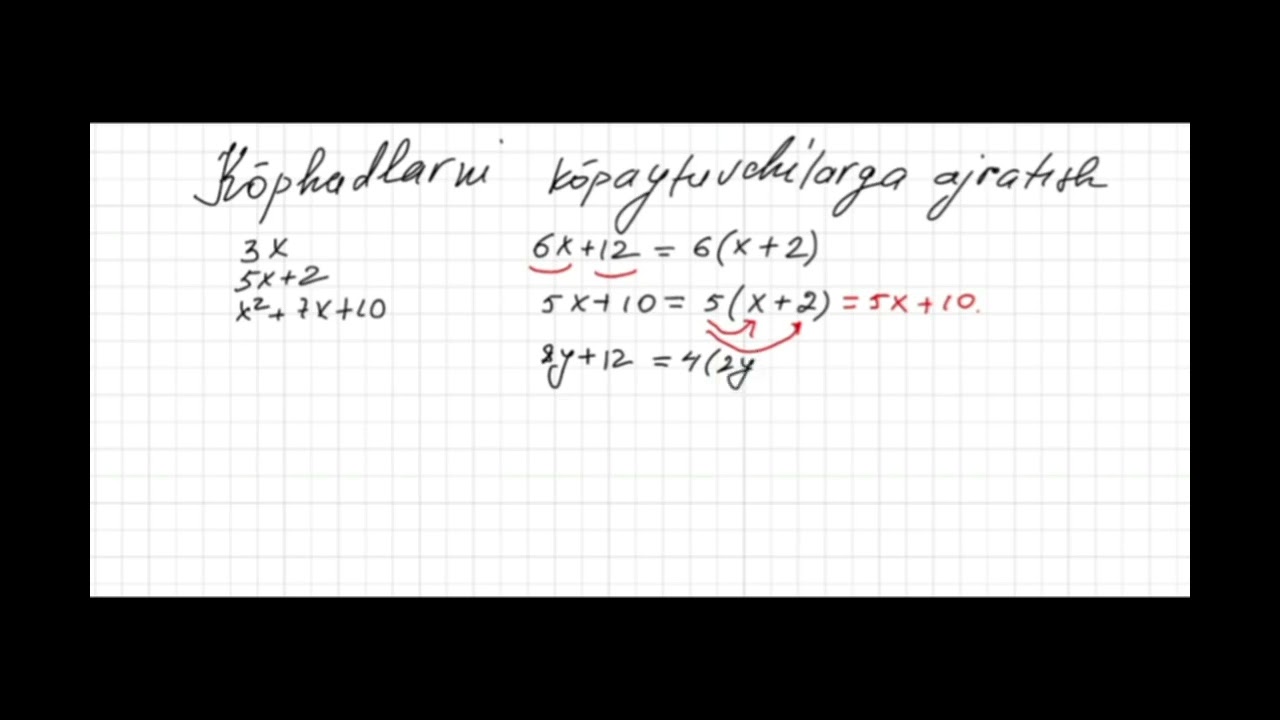 Kóphadlarni kópaytuvchilarga ajratish
3x
5x+2
x²+7x+10
6x+12 = 6(x+2)
5x+10 = 5(x+2) = 5x+10.
8y+12 = 4(2y